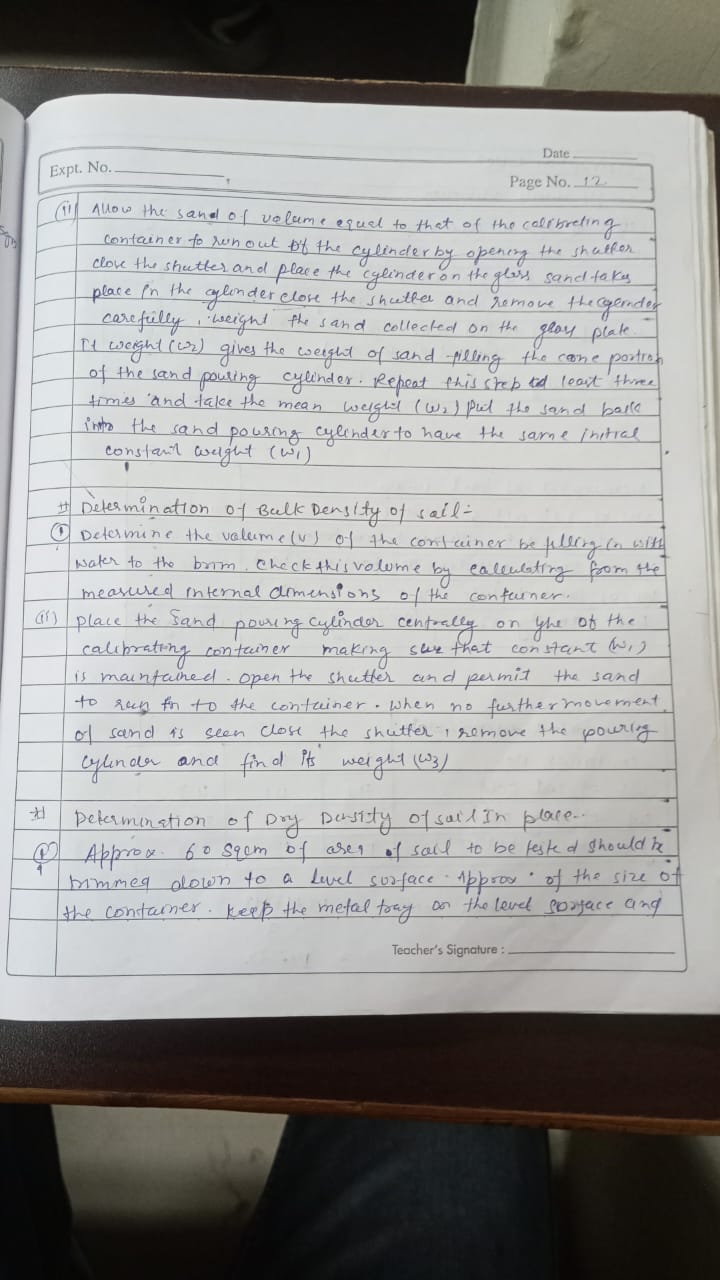 Date
Expt. No.
Page No. 12
(ii) Allow the sand of volume equal to that of the calibreting
container to run out of the cylinder by opening the shutter
close the shutter and place the cylinder on the glass sand takes
place in the cylinder close the shutter and remove the cylender
carefully, weight the sand collected on the glass plate.
It weight (w2) gives the weight of sand filling the cone portion
of the sand pouring cylinder. Repeat this step least three
times and take the mean weight (w2) put the sand back
into the sand pouring cylinder to have the same initial
constant weight (w1)
# Determination of Bulk Density of soil:-
(i) Determine the volume (v) of the container be filling in with
water to the brim. Check this volume by calculating from the
measured internal dimensions of the container.
(ii) place the Sand pouring cylinder centrally on yhe of the
calibrating container making sure that constant (w1)
is maintained. open the shutter and permit the sand
to run in to the container. when no further movement
of sand is seen close the shutter, remove the pouring
cylinder and find its weight (w3)
# Determination of Dry Density of soil In place..
(i) Approx. 60 sqcm of area of soil to be tested should be
trimmed down to a level surface. Approx. of the size of
the container. keep the metal tray on the level surface and
Teacher's Signature :